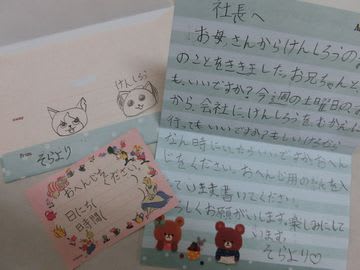 社長へ
お母さんからけんしろうの
のことをききました。お兄ちゃんと
も、いいですか?今週の土曜日の
から、会社に、けんしろうをむかえ
行ってもいいですか?もしいけるなら
なん時にいったらいいですかおへん
じをください。おへんじ用の
ていま書いてください。
しくお願がいします。楽しみにして
います。
そらより♡
けんしろう
From
そらより
おへんじをください。
日にち
時間